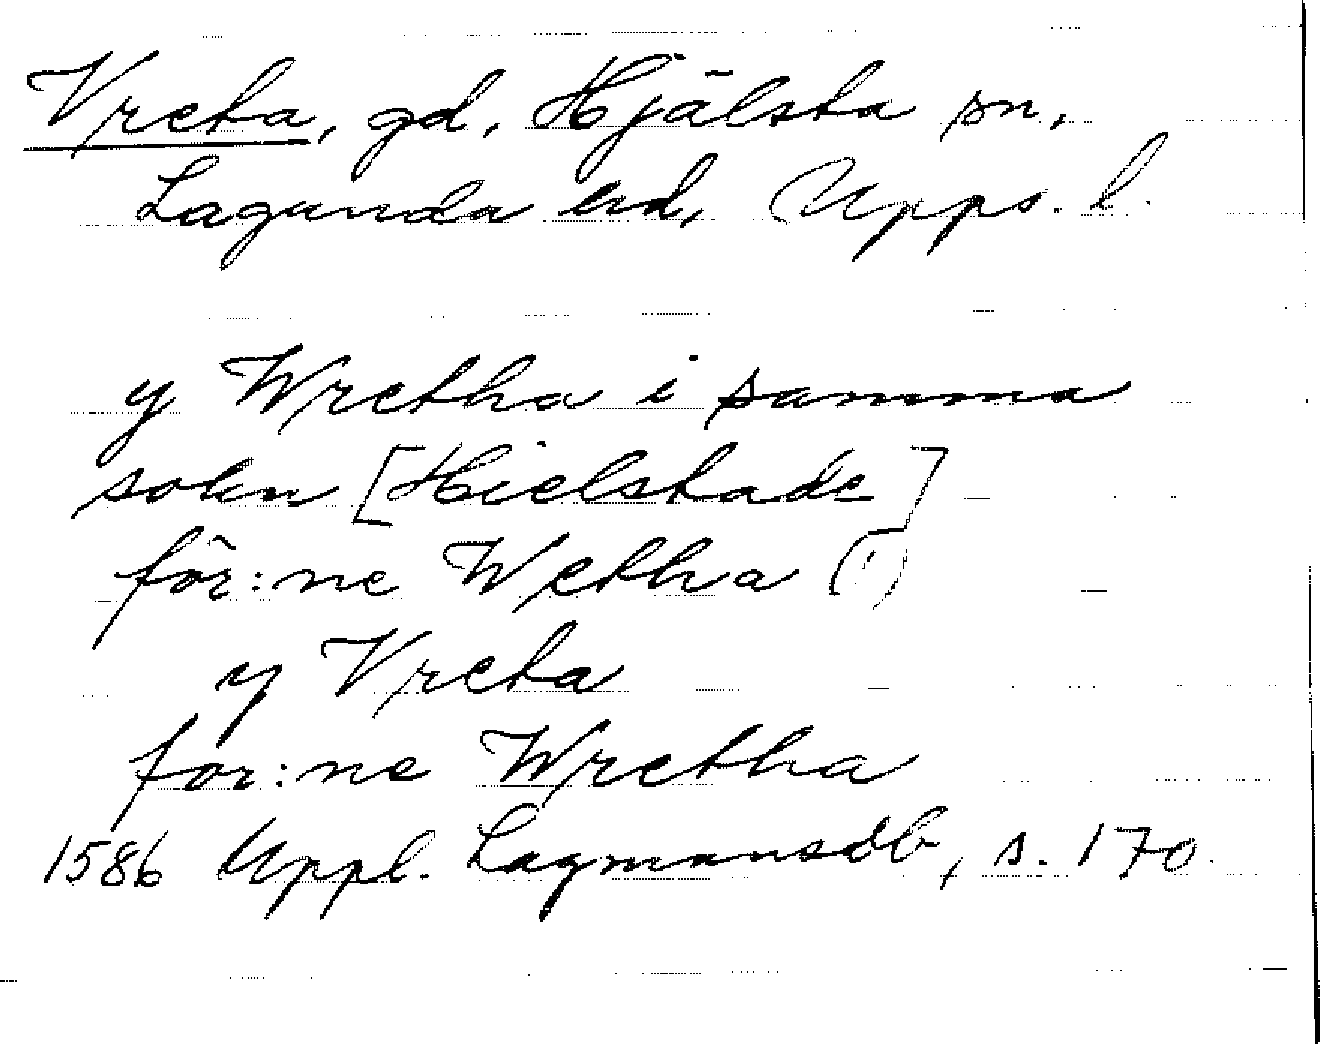 Vreta, gd, Hjälsta sn,
Lagunda hd, Upps. l.
y Wretha i samma
sokn [Hielstade]
för:ne Wetha (!)
y Vreta
for:ne Wretha
1586 Uppl. Lagmansdb, s. 170.